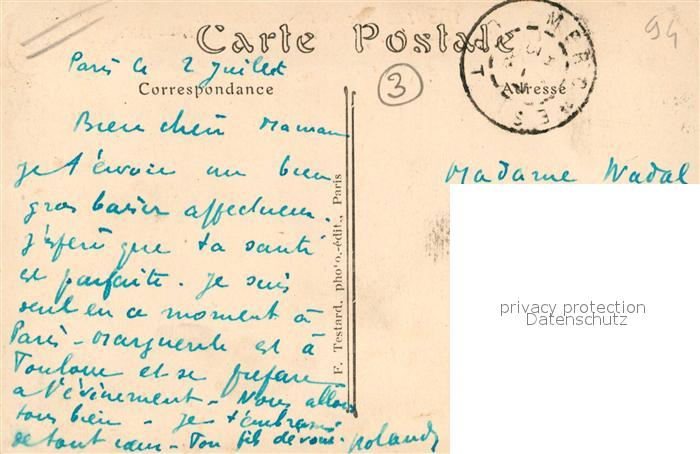 Carte Postale
94
Paris le 2 Juillet
3
Correspondance
Adresse
Bien chère Maman
je t'envoie un bien
gros baiser affectueux.
j'espère que ta santé
est parfaite. je suis
seul en ce moment à
Paris - Marguerite est à
Toulouse et se prépare
à l'évènement - Nous allons
tous bien - je t'embrasse
de tout cœur - Ton fils dévoué.
Madame Nadal
F. Testard, photo.-édit., Paris
privacy protection
Datenschutz